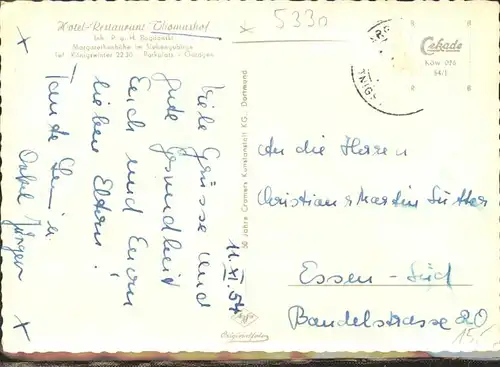 Hotel-Restaurant Thomashof
Inh. P. u. H.
Margarethenhöhe im Siebengebirge
Tel. Königswinter 2230 Parkplatz - Garagen
5330
Cekade
Köw 026
Viele Grüsse und
gute Gesundheit
Euch und Euren
lieben Eltern!
Tante u.
Onkel Jürgen
11. XI. 54
50 Jahre Cramers Kunstanstalt KG., Dortmund
Agfa
Originalfoto
An die Herren
Christian & Martin Sutter
Essen - Süd
Bandelstrasse 20
15,-